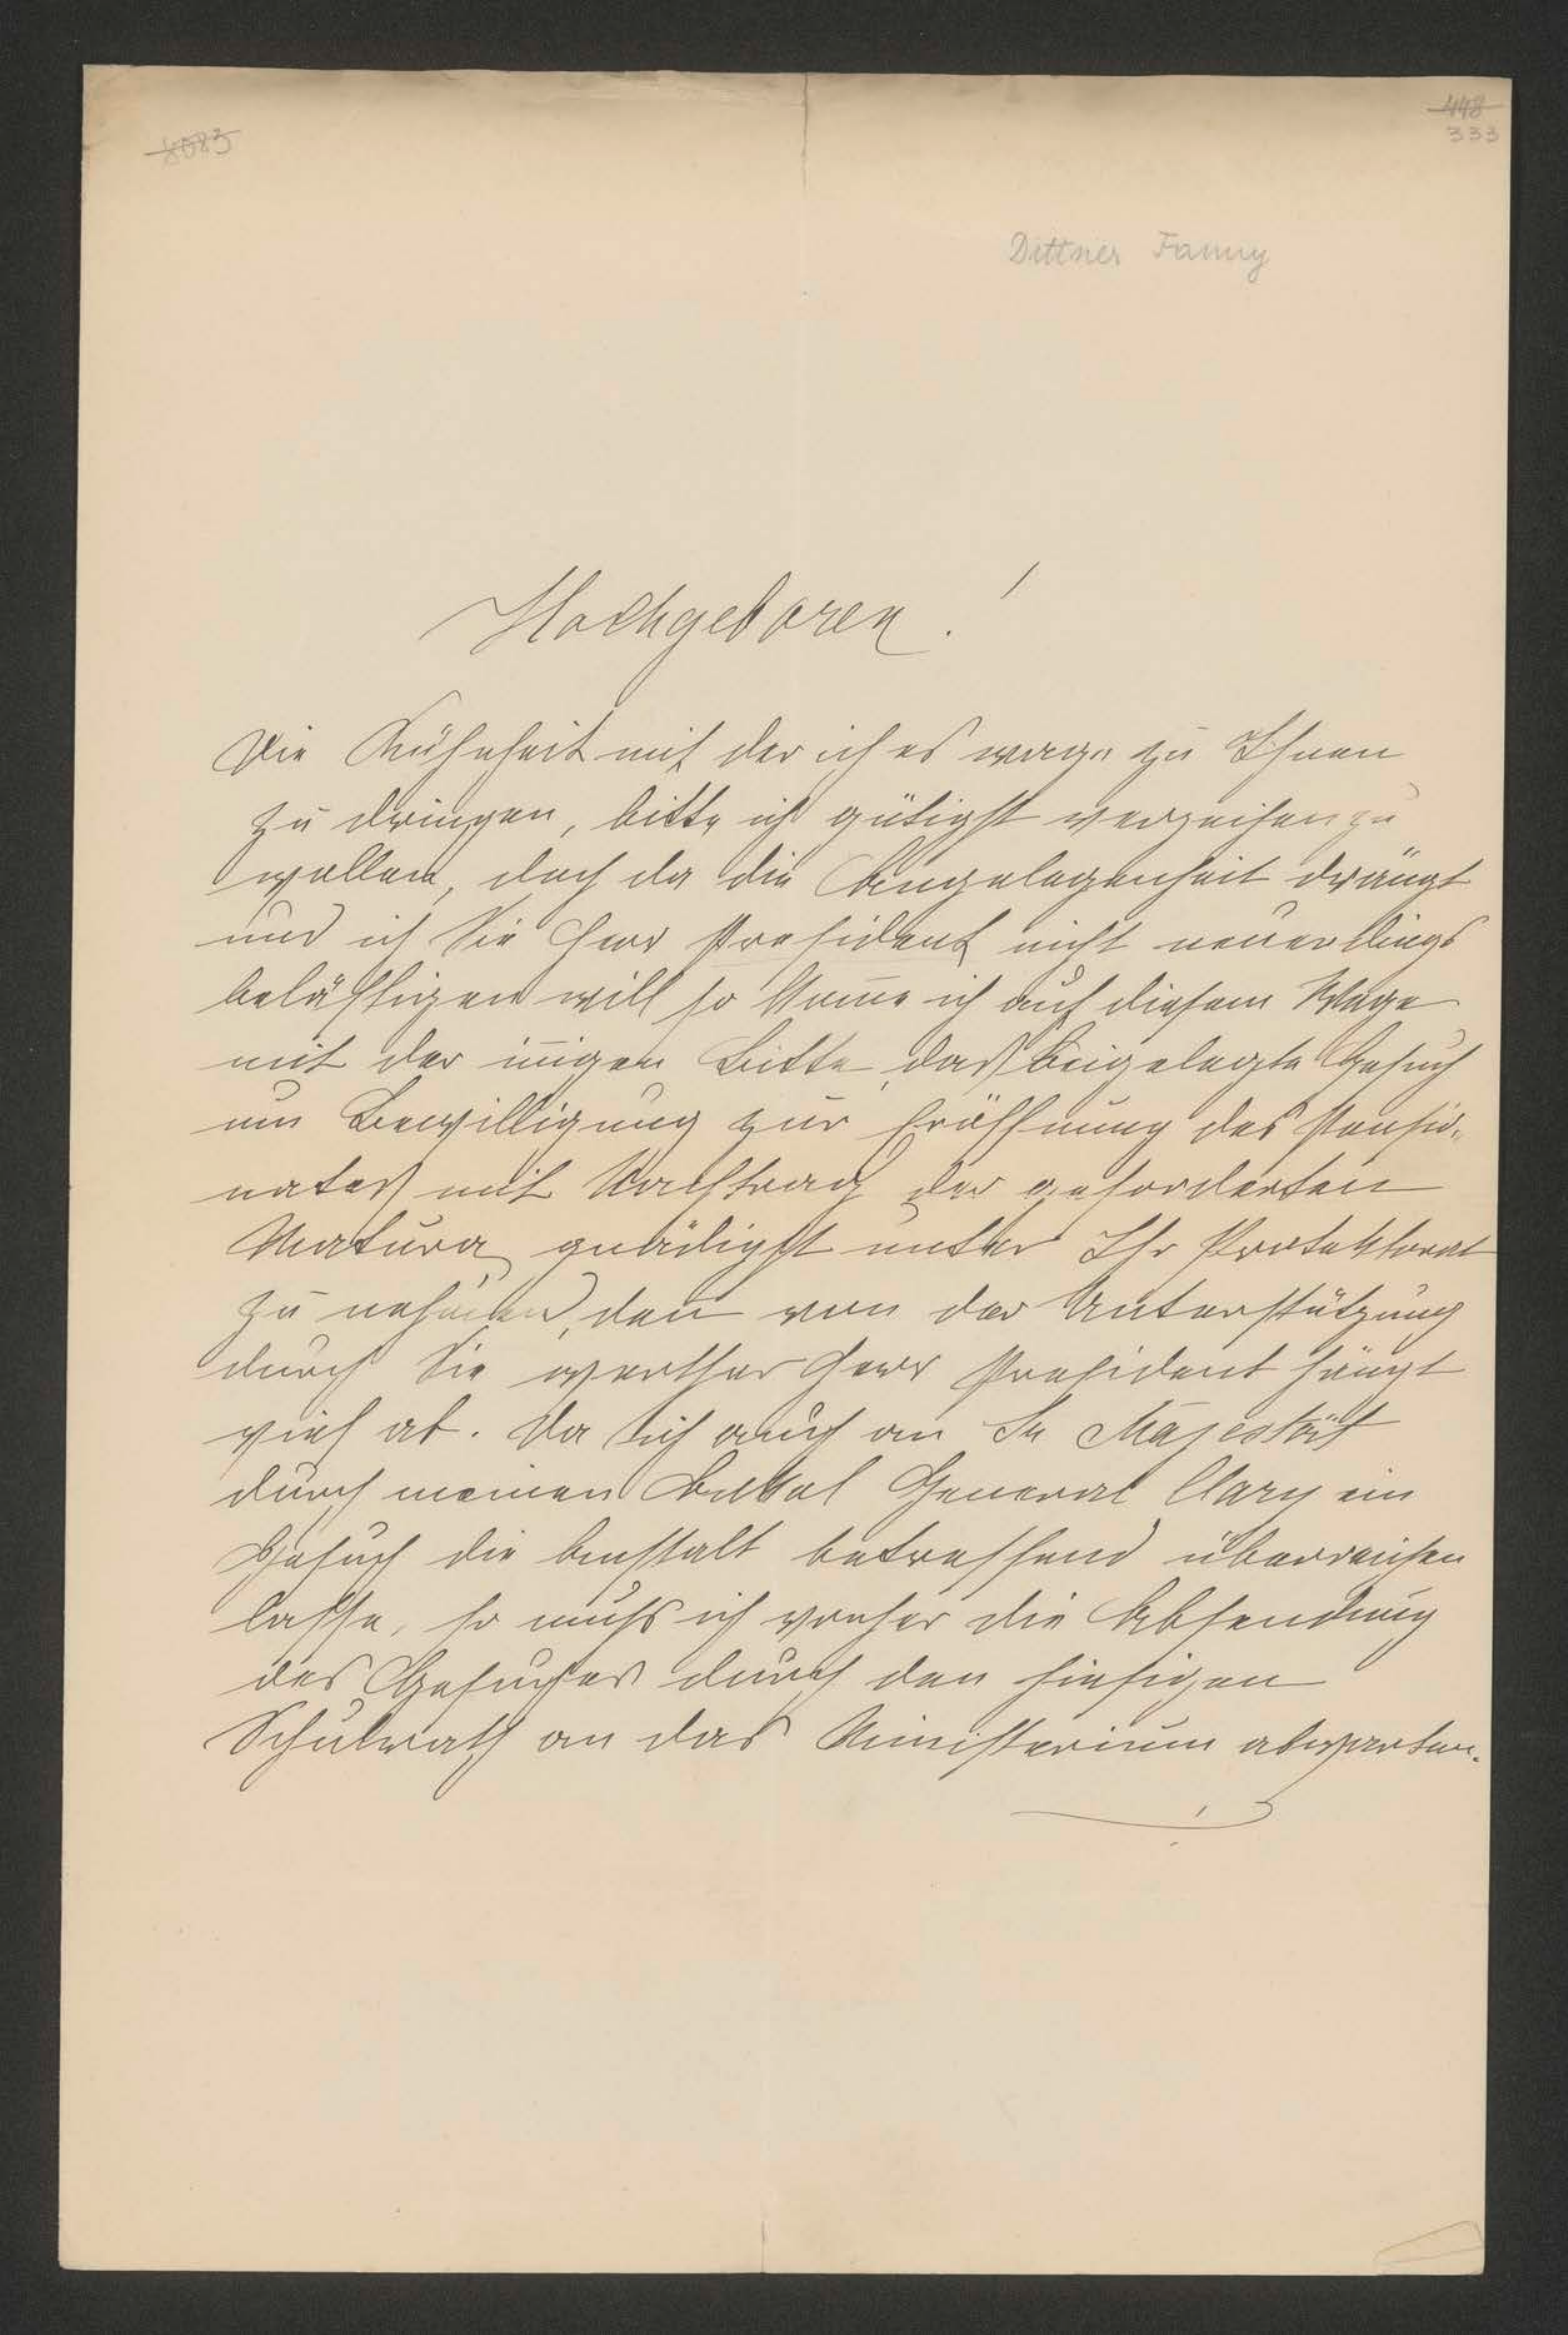 8083
448
333
Dittner Fanny
Hochgeboren!
Die Kühnheit mit der ich es wage zu Ihnen
zu dringen, bitte ich gütigst verzeihen zu
wollen, doch da die Angelegenheit drängt
und ich Sie Herr President nicht neuerdings
belästigen will so kom̅e ich auf diesem Wege
mit der in̅igen Bitte, das beigelegte Gesuch
um Bewilligung zur Eröffnung des Pensio-
nates mit Nachtrag der geforderten
Matura gnädigst unter Ihr Protektorat
zu nehmen, den̅ von der Unterstützung
durch Sie werther Herr President hängt
viel ab. Da ich auch an Sr Majestät
durch meinen General Clary ein
Gesuch die Anstalt betreffend überreichen
lasse, so muß ich vorher die Absendung
des Gesuches durch den hiesigen
Schulrath an das Ministerium abwarten.